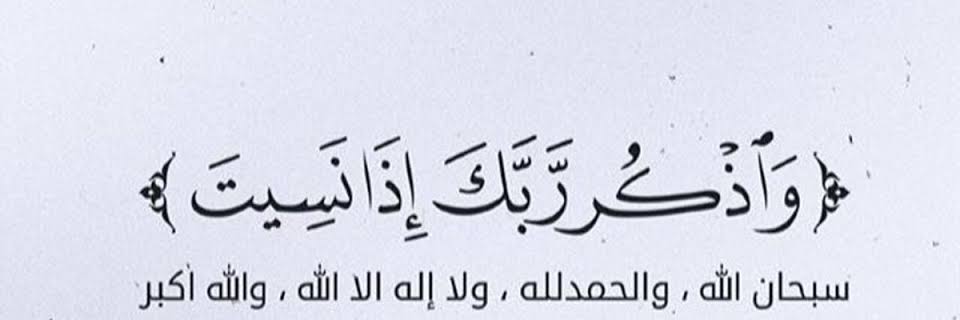 ﴿ وَٱذۡكُر رَّبَّكَ إِذَا نَسِيتَ ﴾
سبحان الله ، والحمدلله ، ولا إله الا الله ، والله أكبر